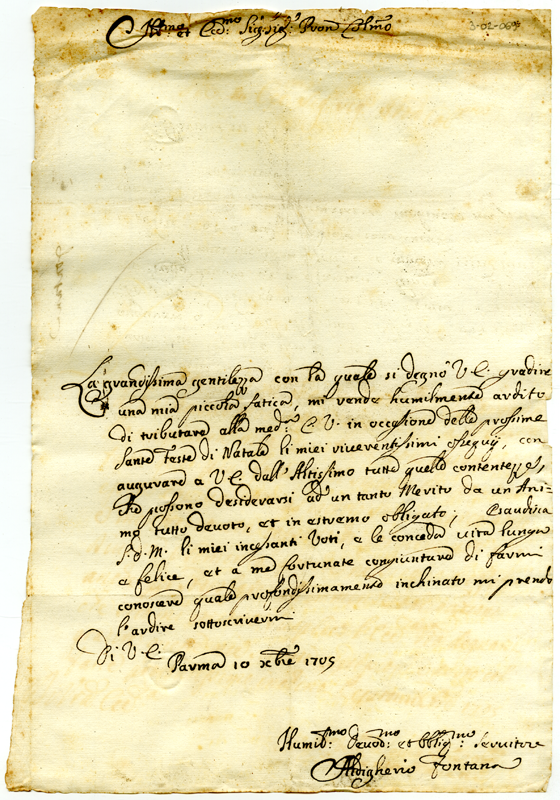 Ill.mo et Ecc.mo Sig.r Sig.r Pron Col.mo
3-02-069
La grandissima gentilezza con la quale si degnò V. E. gradire
una mia piccola fatica, mi rende humilmente ardito
di tributare alla med.ma E. V. in occasione delle prossime
Sante Feste di Natale li miei riverentissimi ossequij, con
augurare a V. E. dall'Altissimo tutte quelle contentezze,
che possono desiderarsi ad un tanto Merito da un Ani-
mo tutto devoto, et in estremo obligato; Esaudisca
S. D. M. li miei incessanti Voti, e le conceda vita lunga
e felice, et a me fortunate congiunture di farmi
conoscere quale profondissimamente inchinato mi prendo
l'ardire sottoscrivermi
Di V. E.
Parma 10 Xbre 1705
Humil.mo Devod.mo et Obblig.mo Servitore
Aldigherio Fontana